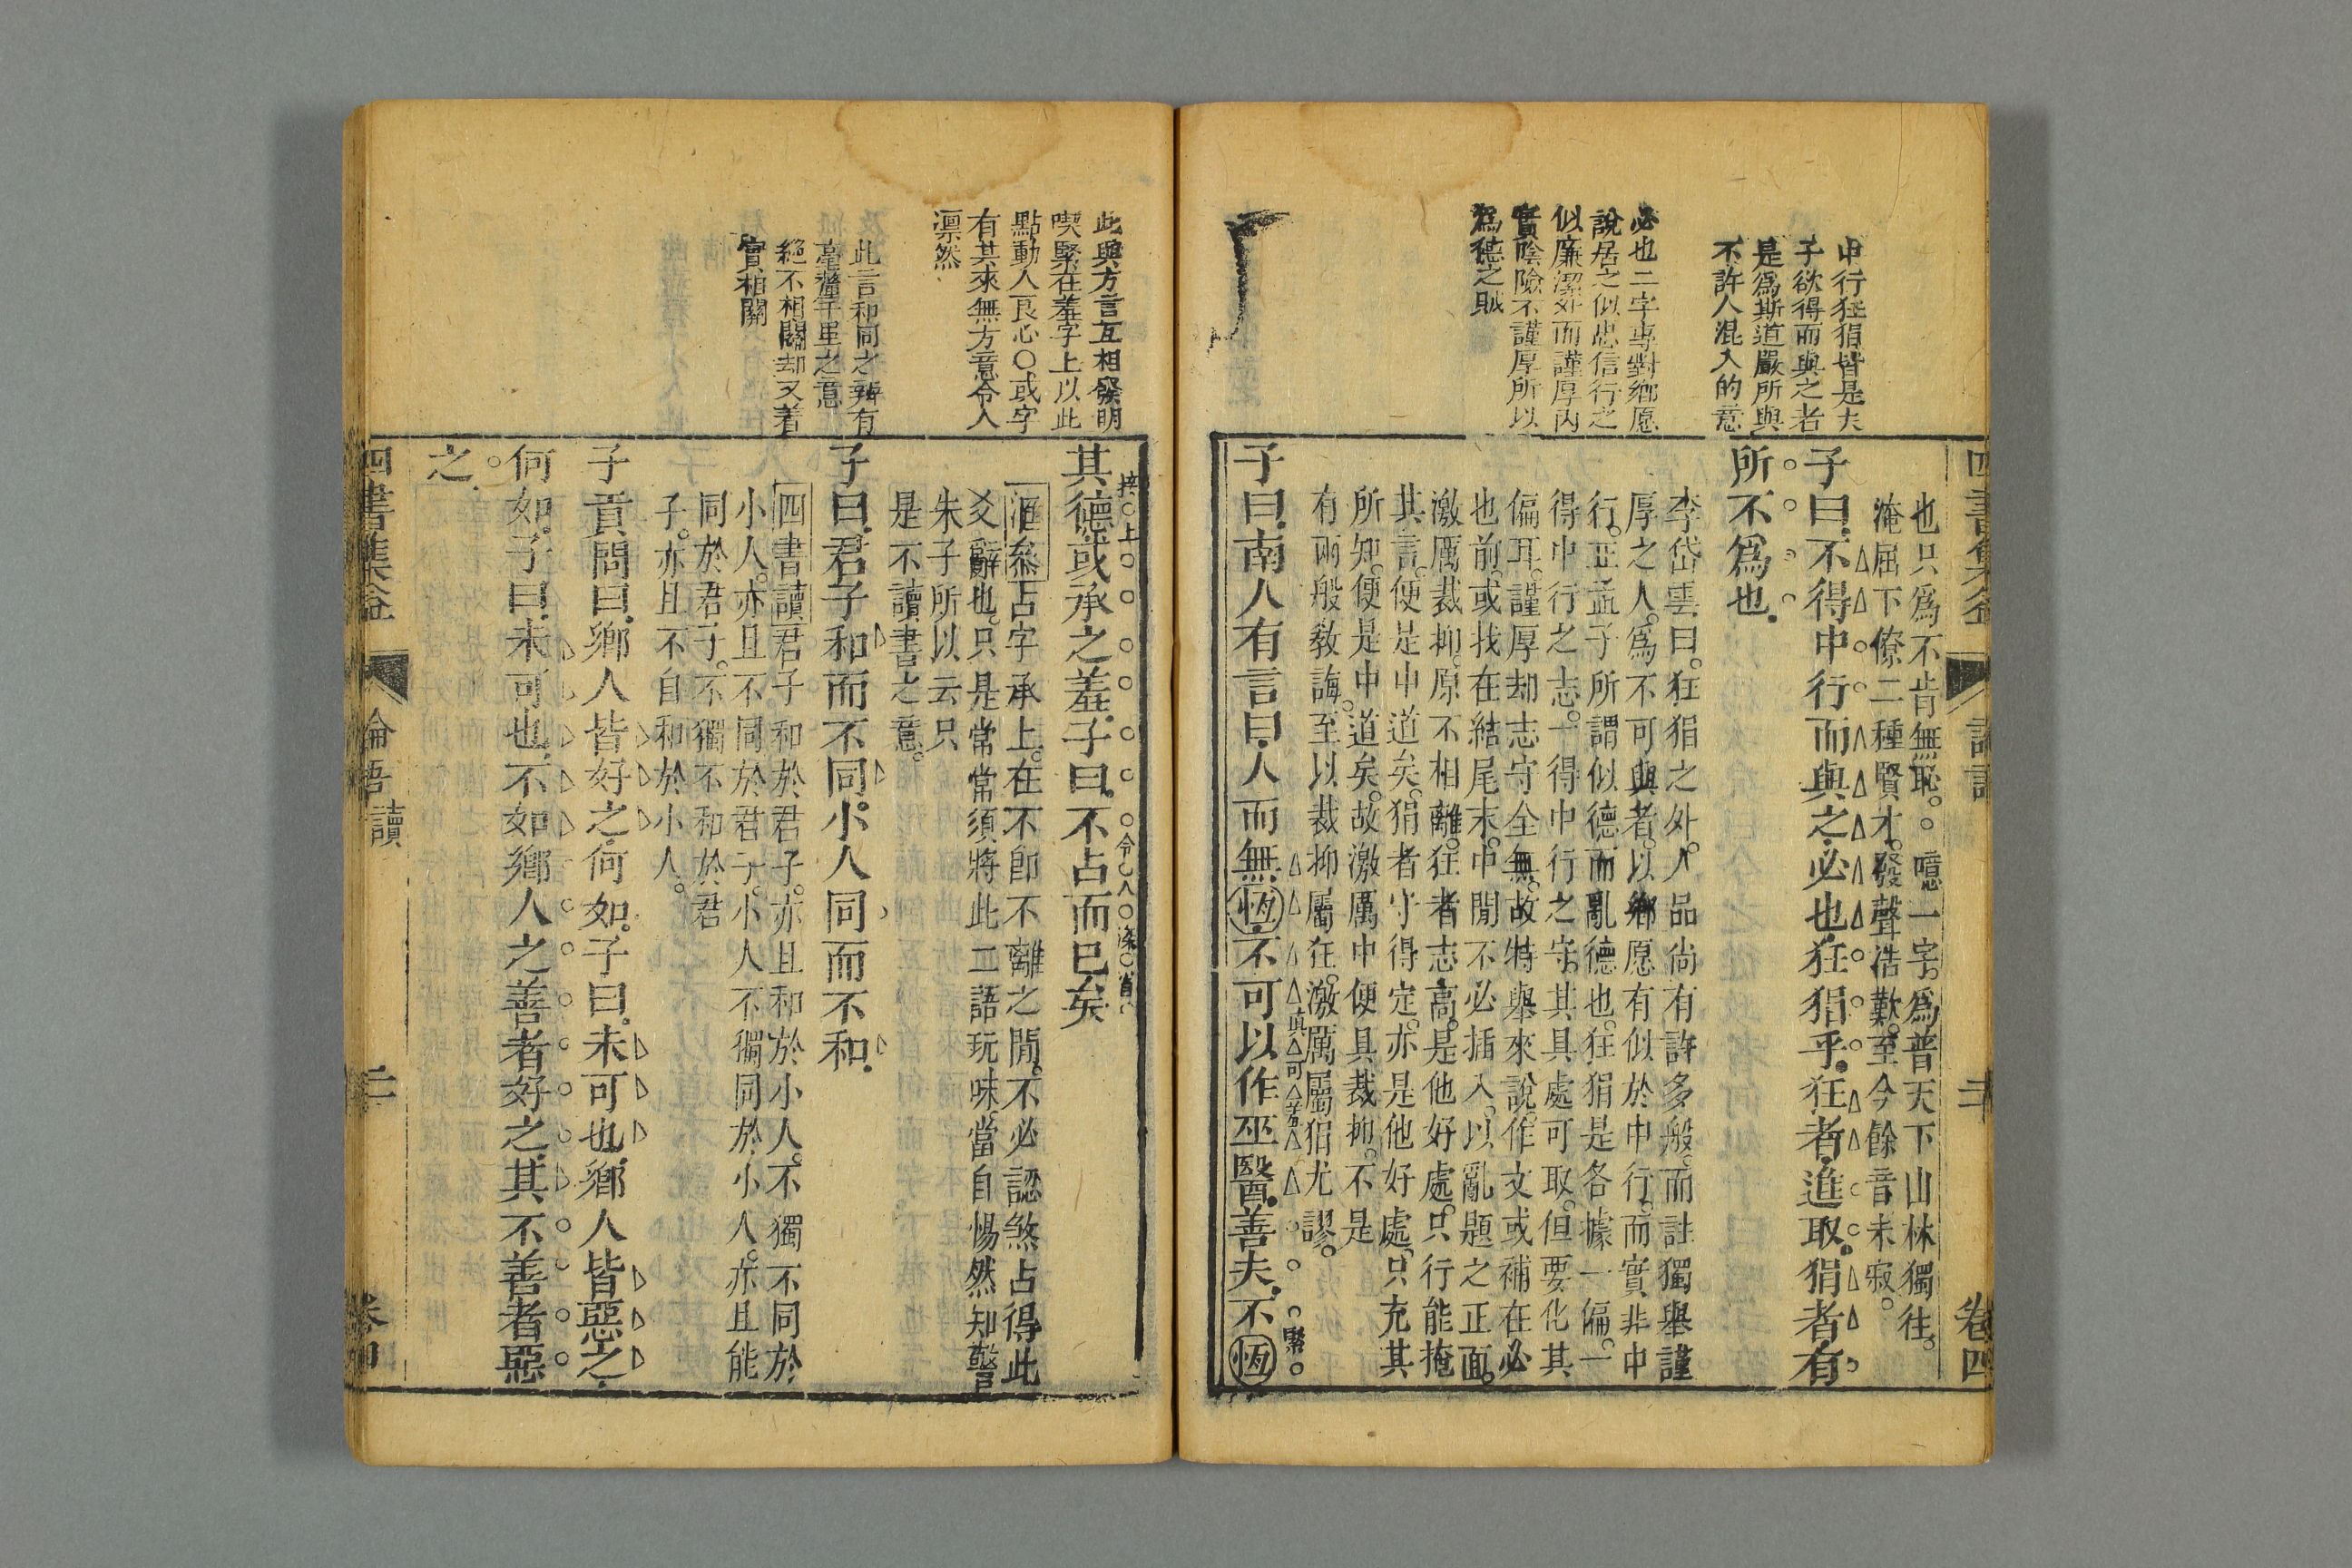 中行狂狷皆是夫
子欲得而與之者
是爲斯道嚴所與
不許人混入的意
必也二字專對鄉愿
說居之似忠信行之
似廉潔外而謹厚內
實陰險不謹厚所以
爲德之賊
也只爲不肯無恥。噫一字。爲普天下山林獨往。
淹屈下僚二種賢才。發聲浩歎。至今餘音未寂。
子曰不得中行而與之必也狂狷乎狂者進取狷者有
所不爲也
李岱雲曰。狂狷之外。人品尚有許多般。而註獨舉謹
厚之人。爲不可與者。以鄉愿有似於中行。而實非中
行。正孟子所謂似德而亂德也。狂狷是各據一偏。一
得中行之志。一得中行之守。其具處可取。但要化其
偏耳。謹厚却志守全無。故特舉來說。作文或補在必
也前。或找在結尾末。中間不必插入。以亂題之正面。
激厲裁抑。原不相離。狂者志高。是他好處。只行能掩
其言。便是中道矣。狷者守得定。亦是他好處。只充其
所知。便是中道矣。故激厲中便具裁抑。不是
有兩般敎誨。至以裁抑屬狂。激厲屬狷尤謬。
子曰南人有言曰人而無恆不可以作巫醫善夫不恆
四書集益
卷四
此與方言互相發明
喫緊在羞字上以此
點動人良心〇或字
有其來無方意令人
凛然
此言和同之辨有
毫釐千里之意
絕不相關却又着
實相關
其德或承之羞子曰不占而已矣
滙叅占字承上。在不卽不離之間。不必認煞占得此
爻辭也。只是常常須將此二語玩味。當自惕然知警
朱子所以云只
是不讀書之意。
子曰君子和而不同小人同而不和
四書讀君子和於君子。亦且和於小人。不獨不同於
小人。亦且不同於君子。小人不獨同於小人。亦且能
同於君子。不獨不和於君
子。亦且不自和於小人。
子貢問曰鄉人皆好之何如子曰未可也鄉人皆惡之
何如子曰未可也不如鄉人之善者好之其不善者惡
之
四書集益
論語讀
卷四